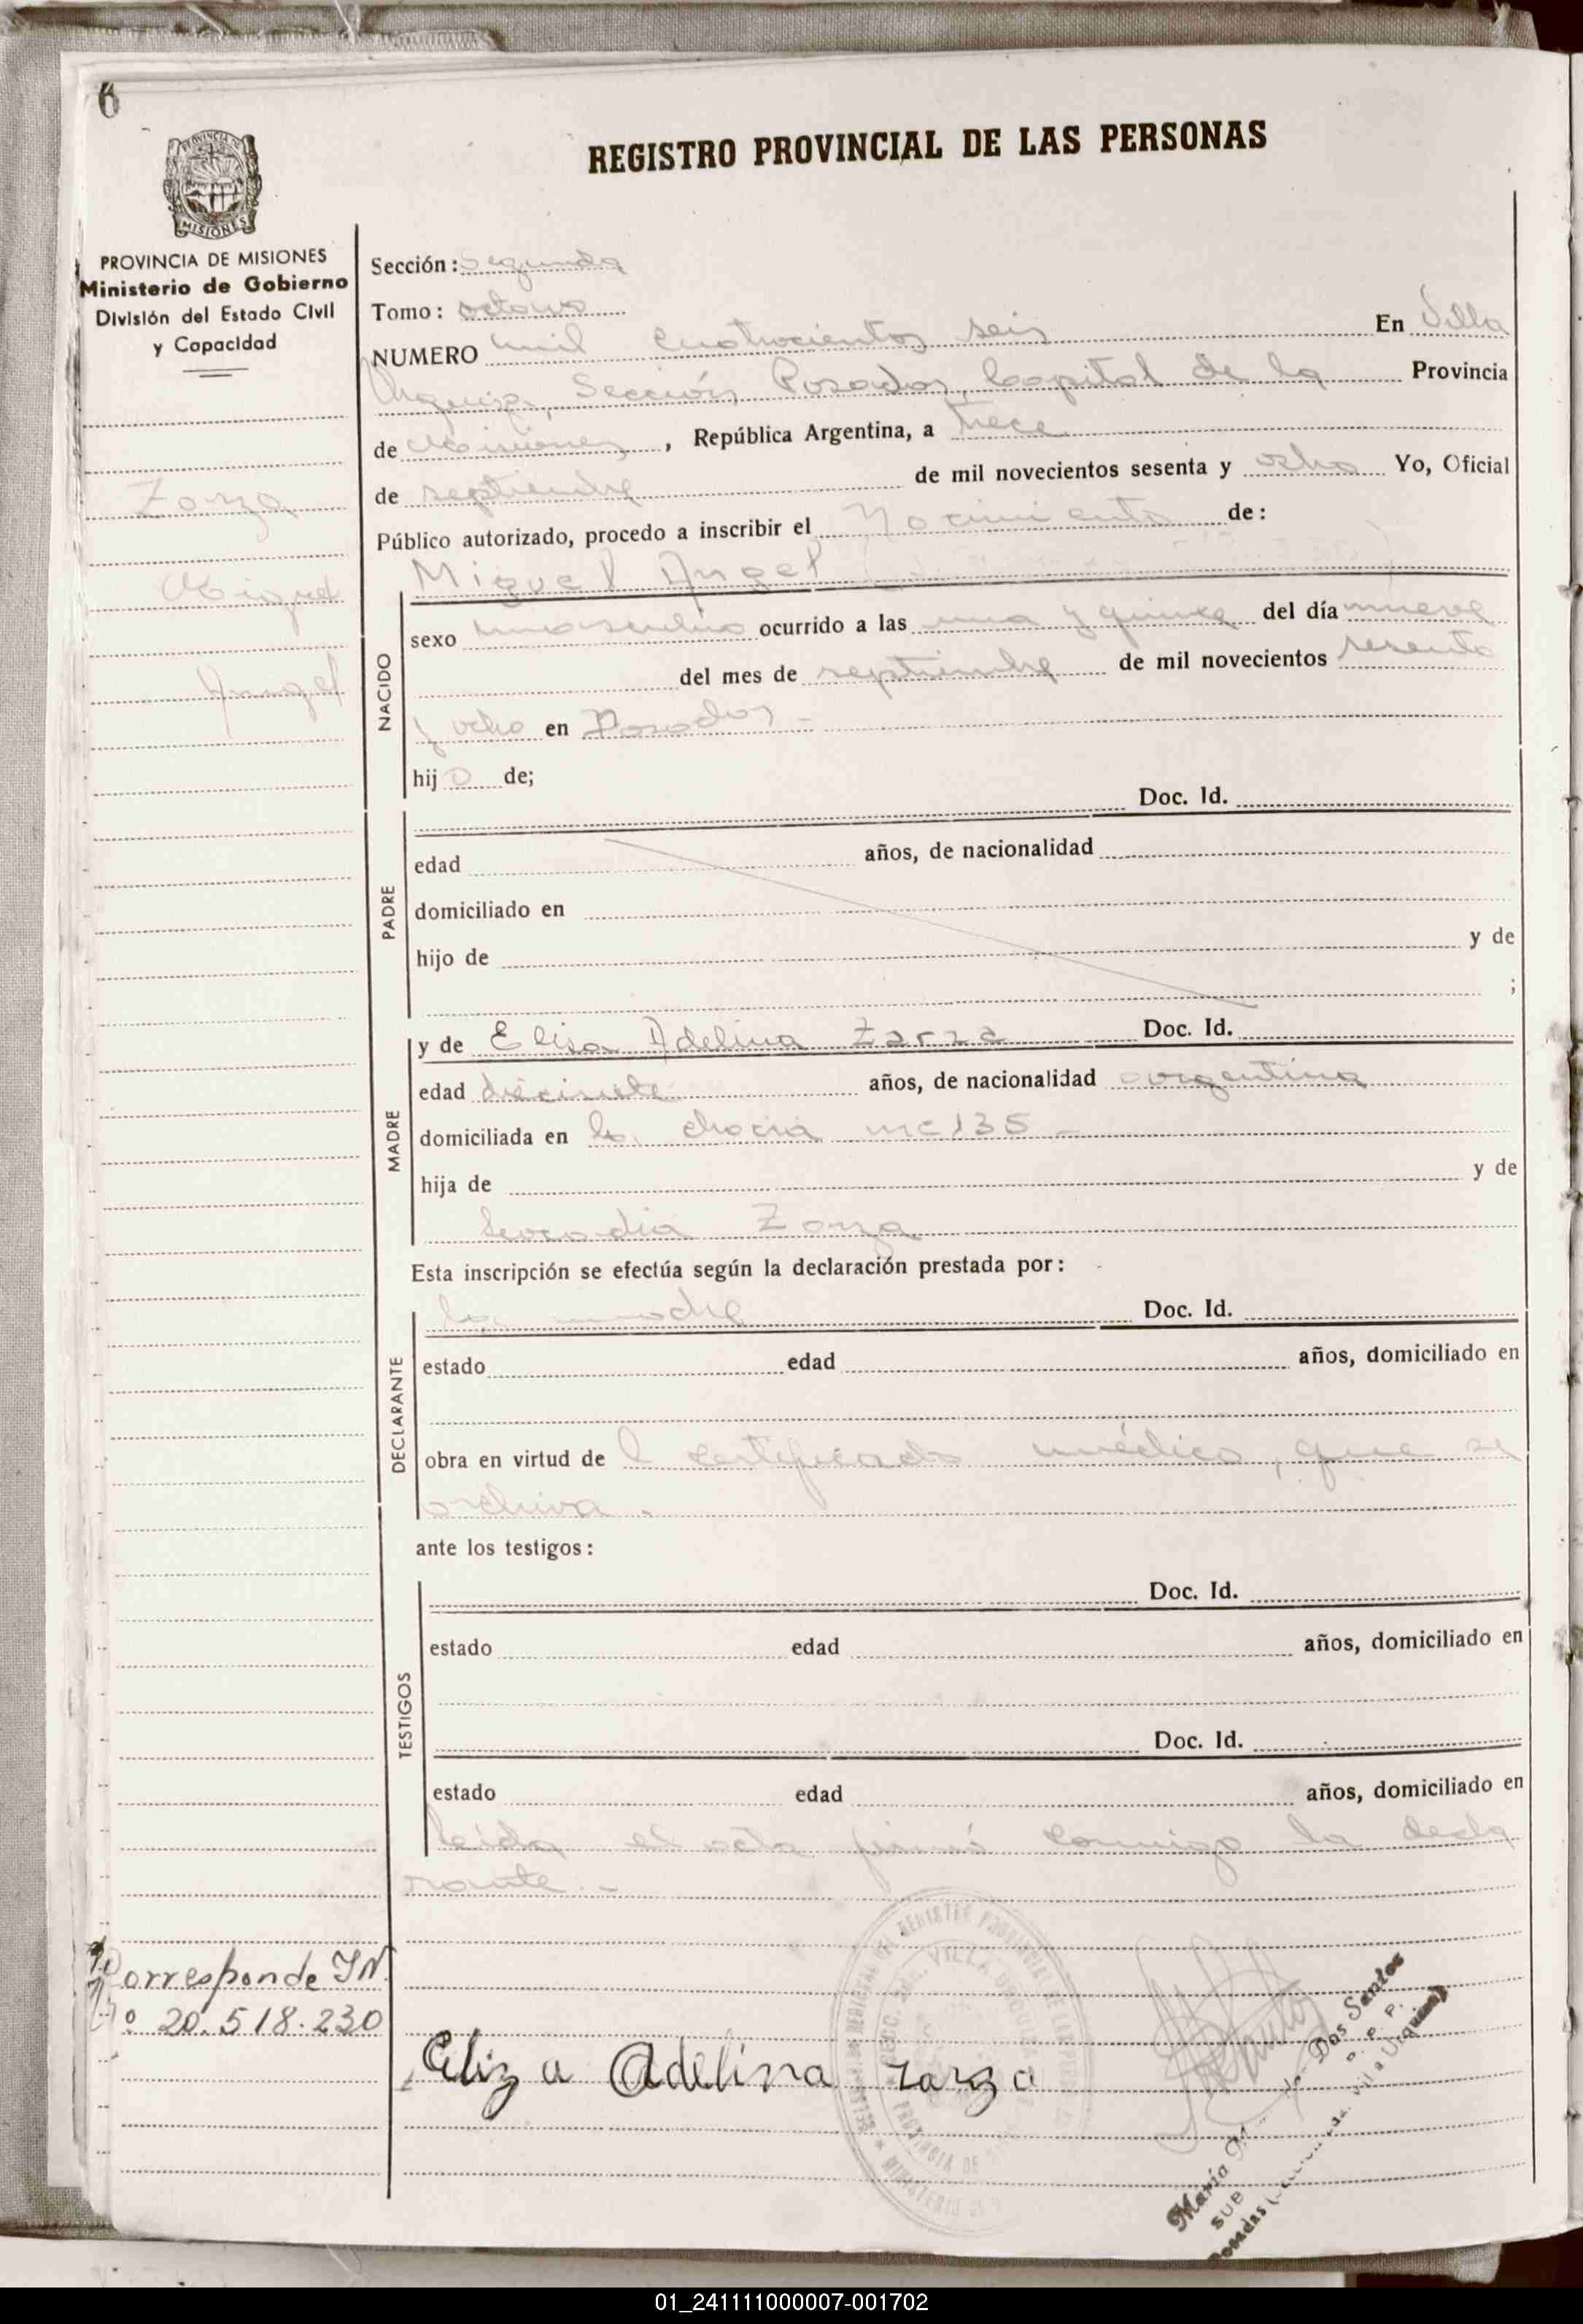 6
REGISTRO PROVINCIAL DE LAS PERSONAS
PROVINCIA DE
MISIONES
PROVINCIA DE MISIONES
Ministerio de Gobierno
División del Estado Civil
y Capacidad
Zarza
Miguel
Angel
Sección: Segunda
Tomo: octavo
NUMERO mil cuatrocientos seis En Villa
Urquiza, Sección Posadas, Capital de la Provincia
de Misiones, República Argentina, a trece
de septiembre de mil novecientos sesenta y ocho Yo, Oficial
Público autorizado, procedo a inscribir el Nacimiento de:
Miguel Angel
NACIDO
sexo masculino ocurrido a las una y quince del día nueve
del mes de septiembre de mil novecientos sesenta
y ocho en Posadas -
hijo de;
PADRE
Doc. Id.
edad años, de nacionalidad
domiciliado en
hijo de y de
;
MADRE
y de Elisa Adelina Zarza Doc. Id.
edad diecisiete años, de nacionalidad argentina
domiciliada en la chacra 135 -
hija de y de
Leocadia Zarza
Esta inscripción se efectúa según la declaración prestada por:
DECLARANTE
la madre Doc. Id.
estado edad años, domiciliado en
obra en virtud de l certificado médico, que se
archiva.
ante los testigos:
TESTIGOS
Doc. Id.
estado edad años, domiciliado en
Doc. Id.
estado edad años, domiciliado en
Leida el acta firmó conmigo la decla
rante. -
Corresponde IN.
Nº 20.518.230
Eliza Adelina Zarza
VILLA URQUIZA
María Dos Santos
O. P. P.
Posadas Villa Urquiza)
01_241111000007-001702